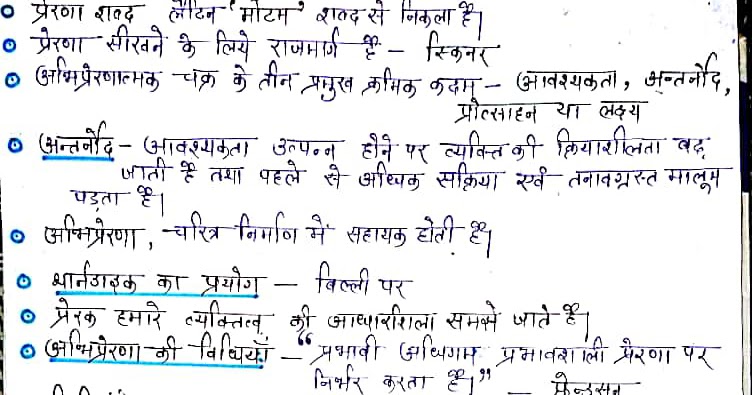 प्रेरणा शब्द लैटिन 'मोटम' शब्द से निकला है।
प्रेरणा सीखने के लिये राजमार्ग है – स्किनर
अभिप्रेरणात्मक चक्र के तीन प्रमुख क्रमिक कदम – आवश्यकता, अन्तर्नोद,
प्रोत्साहन या लक्ष्य
अन्तर्नोद – आवश्यकता उत्पन्न होने पर व्यक्ति की क्रियाशीलता बढ़
जाती है तथा पहले से अधिक सक्रिया एवं तनावग्रस्त मालूम
पड़ता है।
अभिप्रेरणा, चरित्र निर्माण में सहायक होती है।
थार्नडाइक का प्रयोग – बिल्ली पर
प्रेरक हमारे व्यक्तित्व की आधारशिला समझे जाते है।
अभिप्रेरणा की विधियाँ – "प्रभावी अधिगम प्रभावशाली प्रेरणा पर
निर्भर करता है।" –